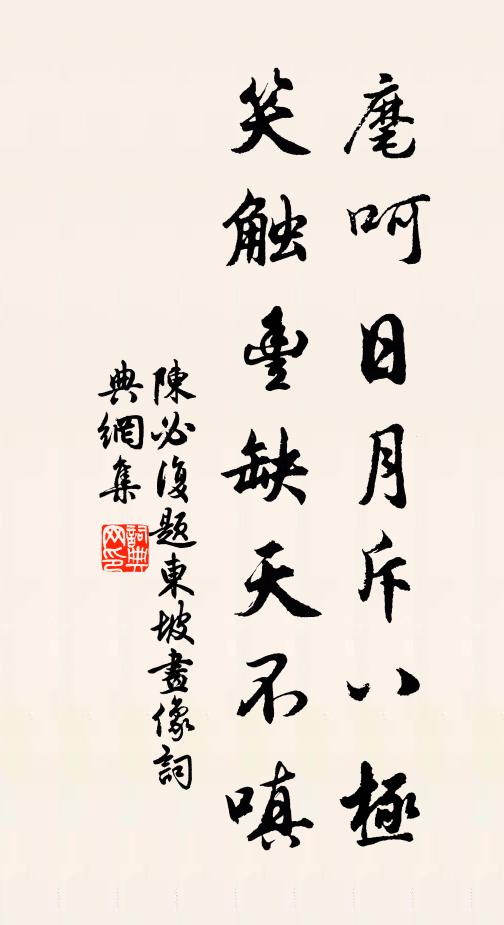 麾呵日月斥八極
笑觸豊缺天不嗔
陳必復題東坡畫像詞
典網集
詞典
网印